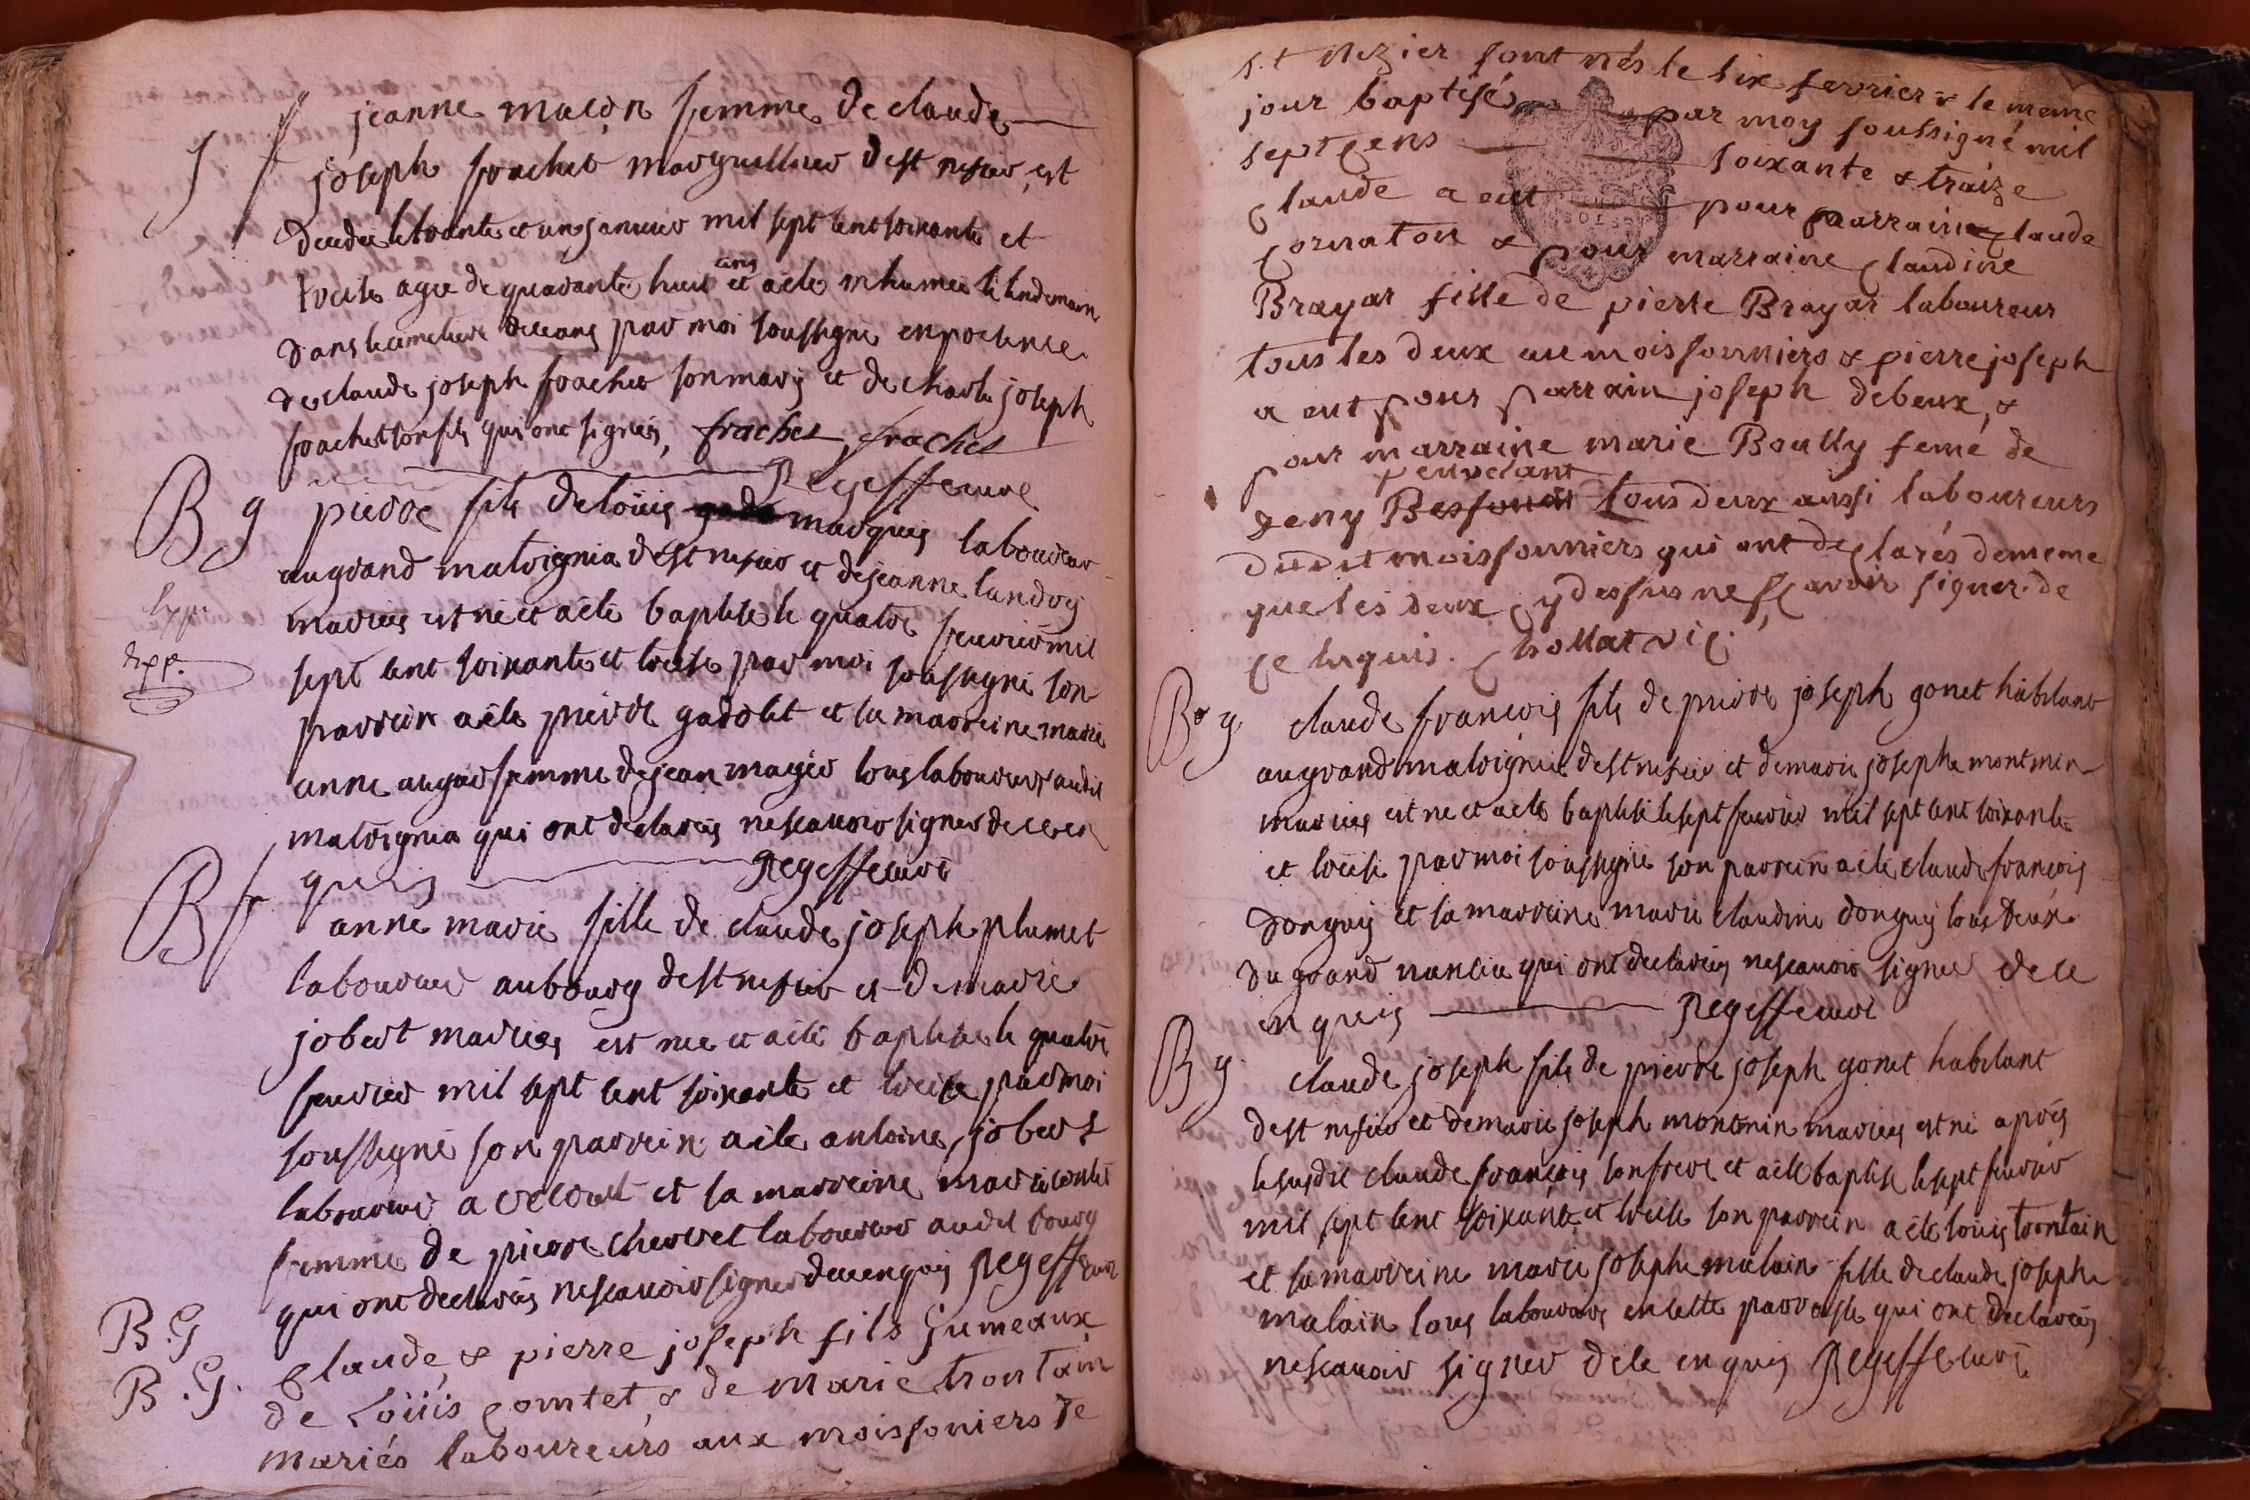 S f jeanne maçon femme de claude
joseph frachet marguillier de st nesier, est
decedee le trante et un janvier mil sept cent soixante et
treise agee de quarante huit ans et a èté inhumee le lendemain
dans le cimetiere de ceans par moi soussigné en presence
de claude joseph frachet son mary et de charle joseph
frachet son fils qui ont signés, frachet, frachet
Regeffeuure
B g pierre fils de loüis marquis laboureur
au grand malvignia de st nesier et de jeanne landry
mariés est né et a èté baptisé le quatre feuvrier mil
sept cent soixante et treise par moi soussigné son
exp.
parrein a èté pierre gadolet et sa marreine marie
anne augar femme de jean magir tous laboureurs audit
malvignia qui ont declarés ne scauoir signer de ce en
quis Regeffeuure
B f anne marie fille de claude joseph plumet
laboureur au bourg de st nesier et de marie
jobert mariés est nee et a èté baptisée le quatre
feuvrier mil sept cent soixante et treise par moi
soussigné son parrein a èté antoine jobert
laboureur a et sa marreine marie comtet
femme de pierre chervet laboureur audit bourg
qui ont declarés ne scauoir signer de ce enquis Regeffeuure
B.G Claude, & pierre joseph fils Jumeaux
B.G. de Loüis comtet, & de marie trontain
mariés laboureurs aux moissoniers de
s.t Nezier sont nés le six fevrier & le meme
jour baptisés par moy soussigné mil
sept cens soixante & traize
Claude a eut pour parrain claude
cornaton & pour marraine claudine
Brayar fille de pierre Brayar laboureur
tous les deux au moissonniers & pierre joseph
a eut pour parrain joseph debeux, &
pour marraine marie Boully feme de
deny tous deux aussi laboureurs
dudit moissonniers qui ont declarés de meme
que les deux cy dessus ne scavoir signer. de
ce requis. Chollat vic.
B g claude françois fils de pierre joseph gonet habitant
au grand malvignia de st nesier et de marie josephe montmin
mariés est né et a èté baptisé le sept feuvrier mil sept cent soixante
et treise par moi soussigné son parrein a èté claude françois
donguy et sa marreine marie claudine donguy tous deux
du grand nancia qui ont declarés ne scauoir signer de ce
en quis Regeffeuure
B g claude joseph fils de pierre joseph gonet habitant
de st nesier et de marie joseph montmin mariés est né après
le susdit claude françois son frere et a èté baptisé le sept feuvrier
mil sept cent soixante et treise son parrein a èté louis trontain
et sa marreine marie josephe malain fille de claude joseph
malain tous laboureurs en cette parroisse qui ont declarés
ne scauoir signer de ce enquis Regeffeuure